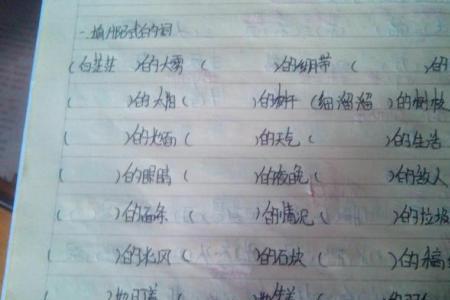 一、填ABB式的词
(白茫茫)的大雾( )的绸带( )的
( )的太阳( )的树干(细溜溜)的树枝
( )的火焰( )的天气( )的生活
( )的眼睛( )的夜晚( )的敌人
( )的石条( )的情况( )的垃圾
( )的北风( )的石块( )的